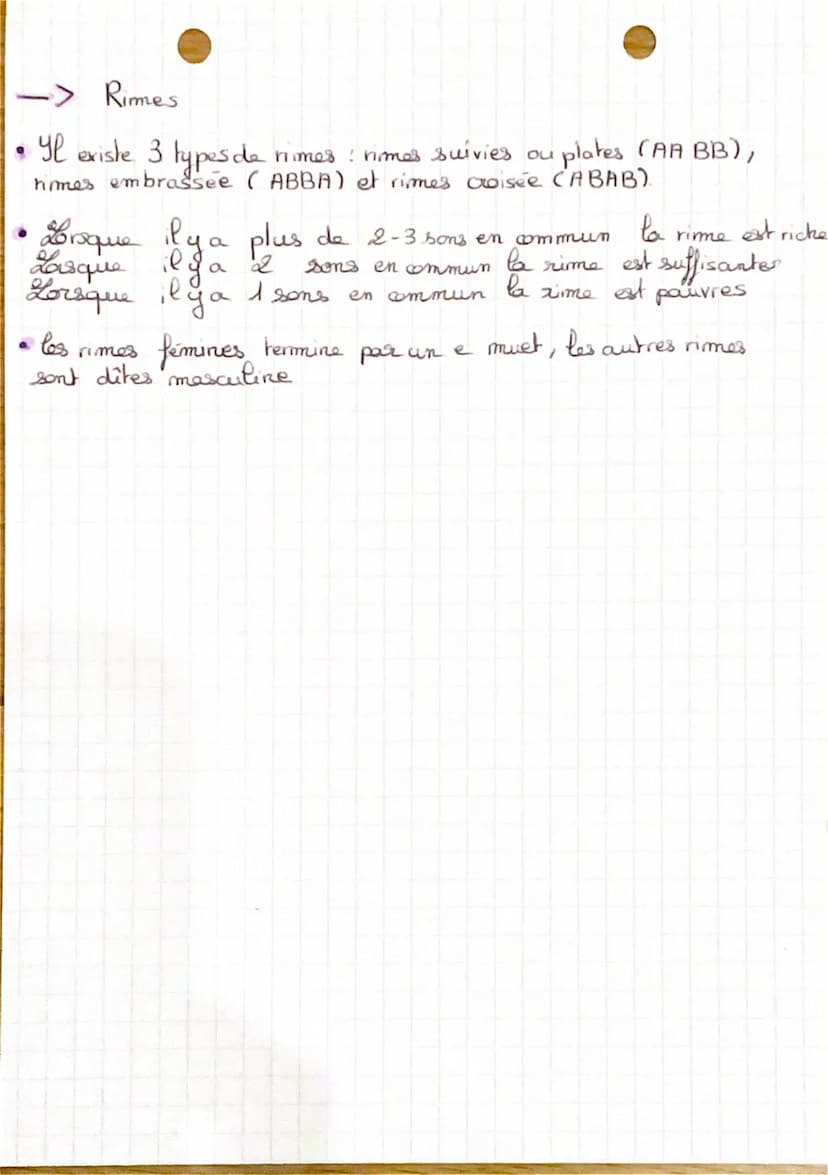 —> Rimes
• Il existe 3 types de rimes : rimes suivies ou plates (AA BB),
rimes embrassée (ABBA) et rimes croisée (ABAB).
• Lorsque il y a plus de 2-3 sons en commun la rime est riche
Losque il y a 2 sons en commun la rime est suffisantes
Lorsque il y a 1 sons en commun la rime est pauvres
• les rimes fémines termine par un e muet, les autres rimes
sont dîtes masculine